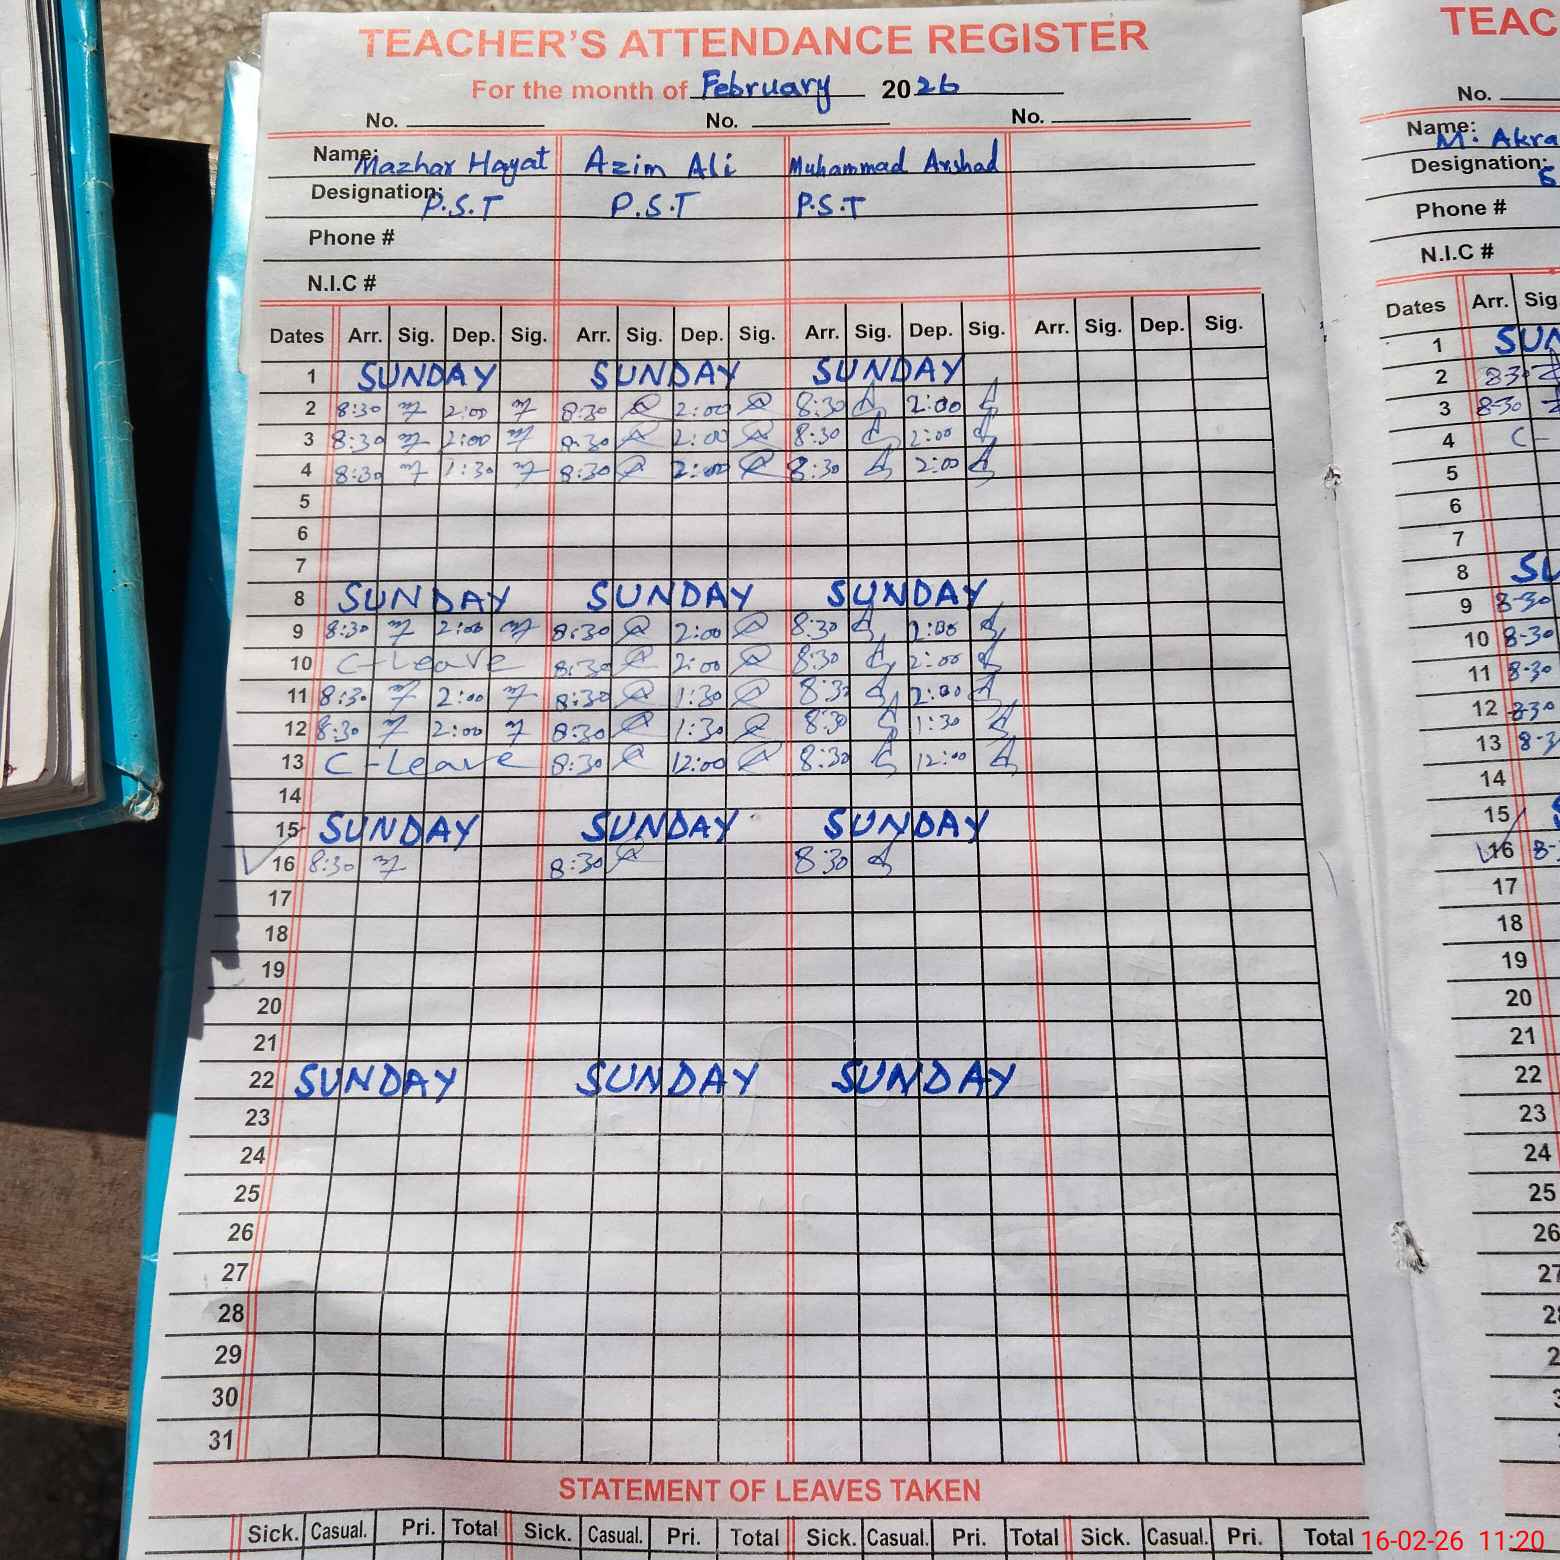 TEACHER'S ATTENDANCE REGISTER
For the month of February 2026
No. No. No.
Name: Mazhar Hayat Azim Ali Muhammad Arshad
Designation: P.S.T P.S.T P.S.T
Phone #
N.I.C #
Dates Arr. Sig. Dep. Sig. Arr. Sig. Dep. Sig. Arr. Sig. Dep. Sig. Arr. Sig. Dep. Sig.
1 SUNDAY SUNDAY SUNDAY
2 8:30 2:00 8:30 2:00 8:30 2:00
3 8:30 2:00 8:30 2:00 8:30 2:00
4 8:30 1:30 8:30 2:00 8:30 2:00
5
6
7
8 SUNDAY SUNDAY SUNDAY
9 8:30 2:00 8:30 2:00 8:30 2:00
10 C-Leave 8:30 2:00 8:30 2:00
11 8:30 2:00 8:30 1:30 8:30 2:00
12 8:30 2:00 8:30 1:30 8:30 1:30
13 C-Leave 8:30 12:00 8:30 12:00
14
15 SUNDAY SUNDAY SUNDAY
16 8:30 8:30 8:30
17
18
19
20
21
22 SUNDAY SUNDAY SUNDAY
23
24
25
26
27
28
29
30
31
STATEMENT OF LEAVES TAKEN
Sick. Casual. Pri. Total Sick. Casual. Pri. Total Sick. Casual. Pri. Total Sick. Casual. Pri. Total
TEAC
No.
Name: M. Akra
Designation:
Phone #
N.I.C #
Dates Arr. Sig
1 SUN
2 8:30
3 8-30
4 C-
5
6
7
8 SU
9 8-30
10 8-30
11 8-30
12 8-30
13 8-3
14
15 S
16 8-
17
18
19
20
21
22
23
24
25
26
27
2
2
3
16-02-26 11:20